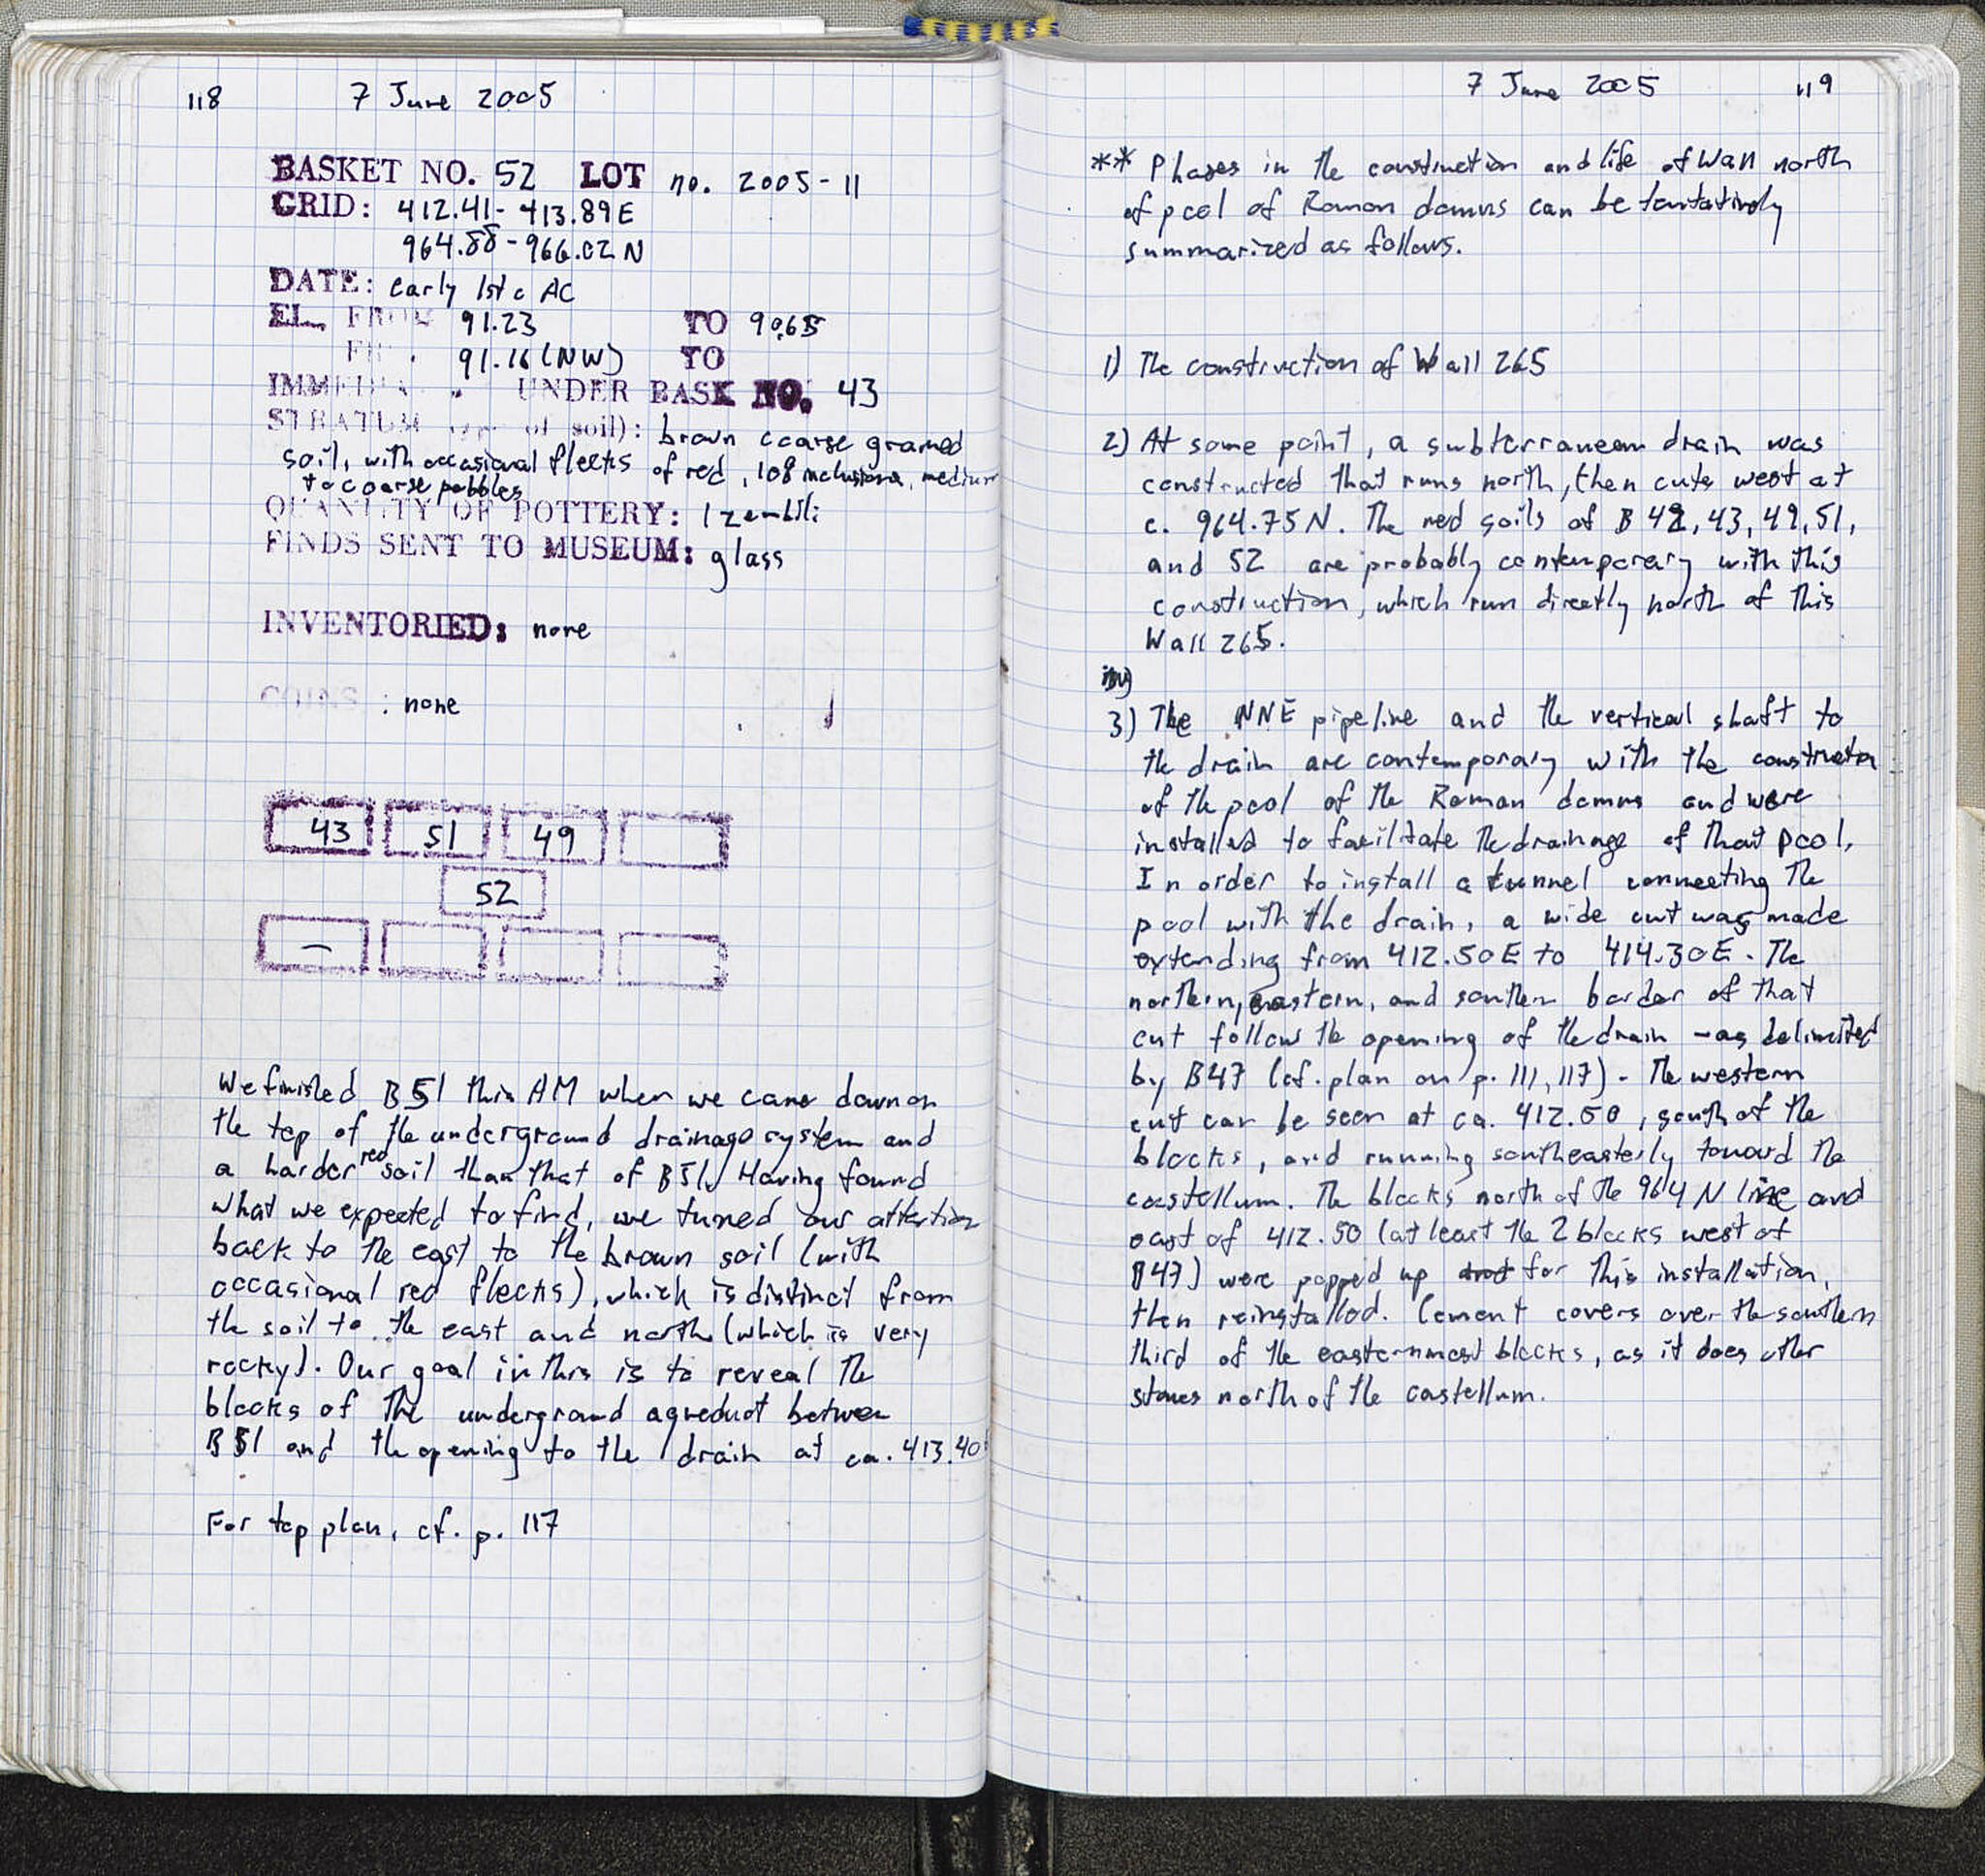 118 7 June 2005
BASKET NO. 52 LOT no. 2005-11
GRID: 412.41-413.89E
964.88-966.02N
DATE: early 1st c AC
EL. FROM 91.23 TO 90.65
91.16 (NW) TO
UNDER BASK NO. 43
STRATUM of soil): brown coarse grained
soil, with occasional flecks of red, 10% inclusions, medium
to coarse pebbles
QUANTITY OF POTTERY: 1 zembili
FINDS SENT TO MUSEUM: glass
INVENTORIED: none
COINS : none
43 51 49
52
–
We finished B51 this AM when we came down on
the top of the underground drainage system and
a harder red soil than that of B51. Having found
what we expected to find, we turned our attention
back to the east to the brown soil (with
occasional red flecks), which is distinct from
the soil to the east and north (which is very
rocky). Our goal in this is to reveal the
blocks of the underground aqueduct between
B51 and the opening to the drain at ca. 413.40
For top plan, cf. p. 117
7 June 2005 119
** Phases in the construction and life of Wall north
of pool of Roman domus can be tentatively
summarized as follows.
1) The construction of Wall 265
2) At some point, a subterranean drain was
constructed that runs north, then cuts west at
c. 964.75N. The red soils of B 42, 43, 49, 51,
and 52 are probably contemporary with this
construction, which run directly north of this
Wall 265.
3) The NNE pipeline and the vertical shaft to
the drain are contemporary with the constructn
of the pool of the Roman domus and were
installed to faciltate the drainage of that pool.
In order to install a tunnel connecting the
pool with the drain, a wide cut was made
extending from 412.50E to 414.30E. The
northern, eastern, and southern border of that
cut follow the opening of the drain - as delimited
by B47 (cf. plan on p. 111, 117) - The western
cut can be seen at ca. 412.50, south of the
blocks, and running southeasterly toward the
castellum. The blocks north of the 964 N line and
east of 412.50 (at least the 2 blocks west of
B47) were popped up for this installation,
then reinstalled. Cement covers over the southern
third of the easternmost blocks, as it does other
stones north of the castellum.